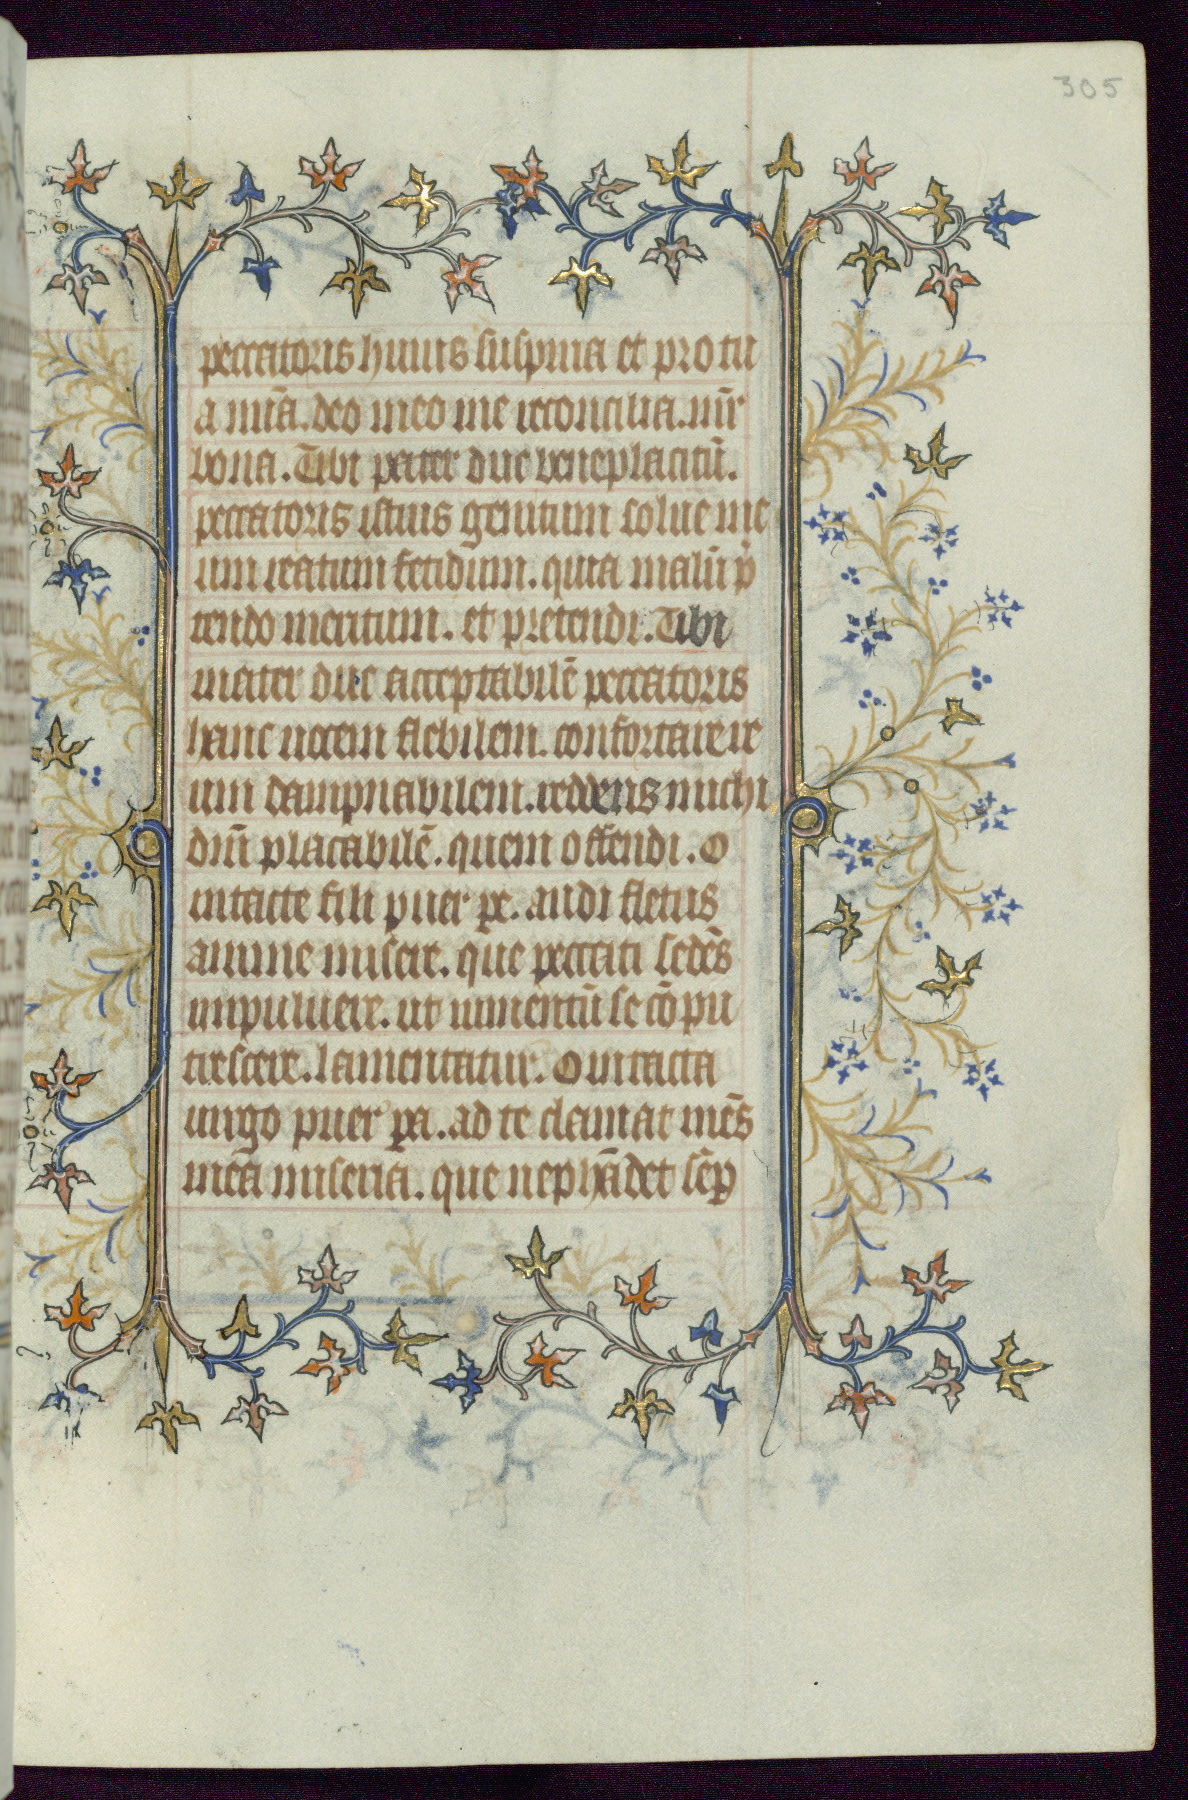 305
peccatoris huius suspiria et pro tu
a mīa. deo meo me reconcilia. mr̄
bona. Tibi pater duc beneplacitū.
peccatoris istius genitum solue me
um reatum fetidum. quia malū p̄
tendo meritum. et pretendi. Tibi
mater duc acceptabilē peccatoris
hanc uocem flebilem. confortare re
um dampnabilem. reddens michi
dn̄m placabilē. quem offendi. O
intacte fili puer pe. audi fletus
anime misere. que peccati sedēs
inpuluere. ut iumentū se cōpu
trescere. lamentatur. O intacta
uirgo puerpa. ad te clamat mēs
mēa miseria. que nephādet sēp